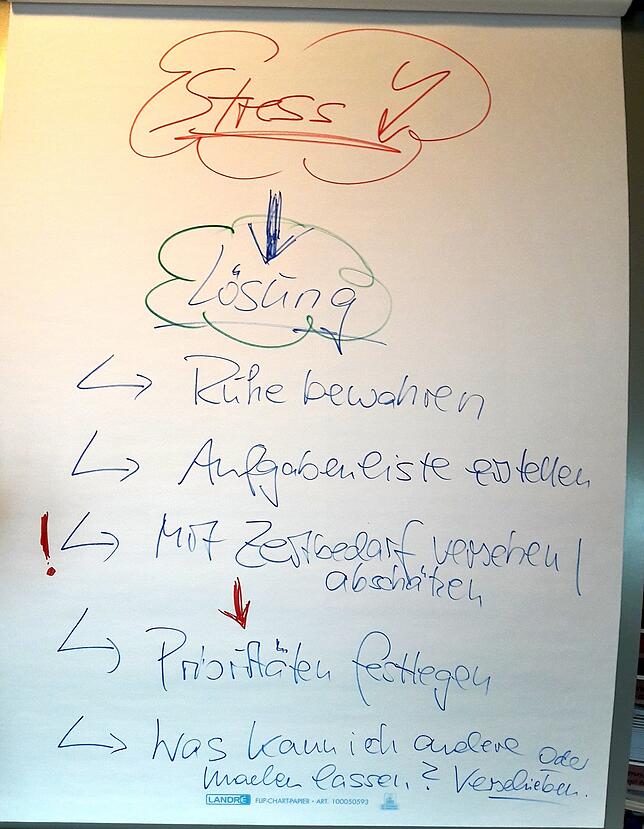 Stress
Lösung
Ruhe bewahren
Aufgabenliste erstellen
! Mit Zeitbedarf versehen /
abschätzen
Prioritäten festlegen
Was kann ich andere oder
machen lassen? Verschieben.
LANDRÉ FLIP-CHART-PAPIER • ART. 100050593